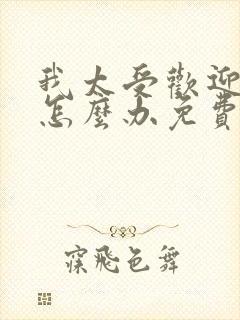 我太受歡迎
怎麼办免費
寐飛色舞